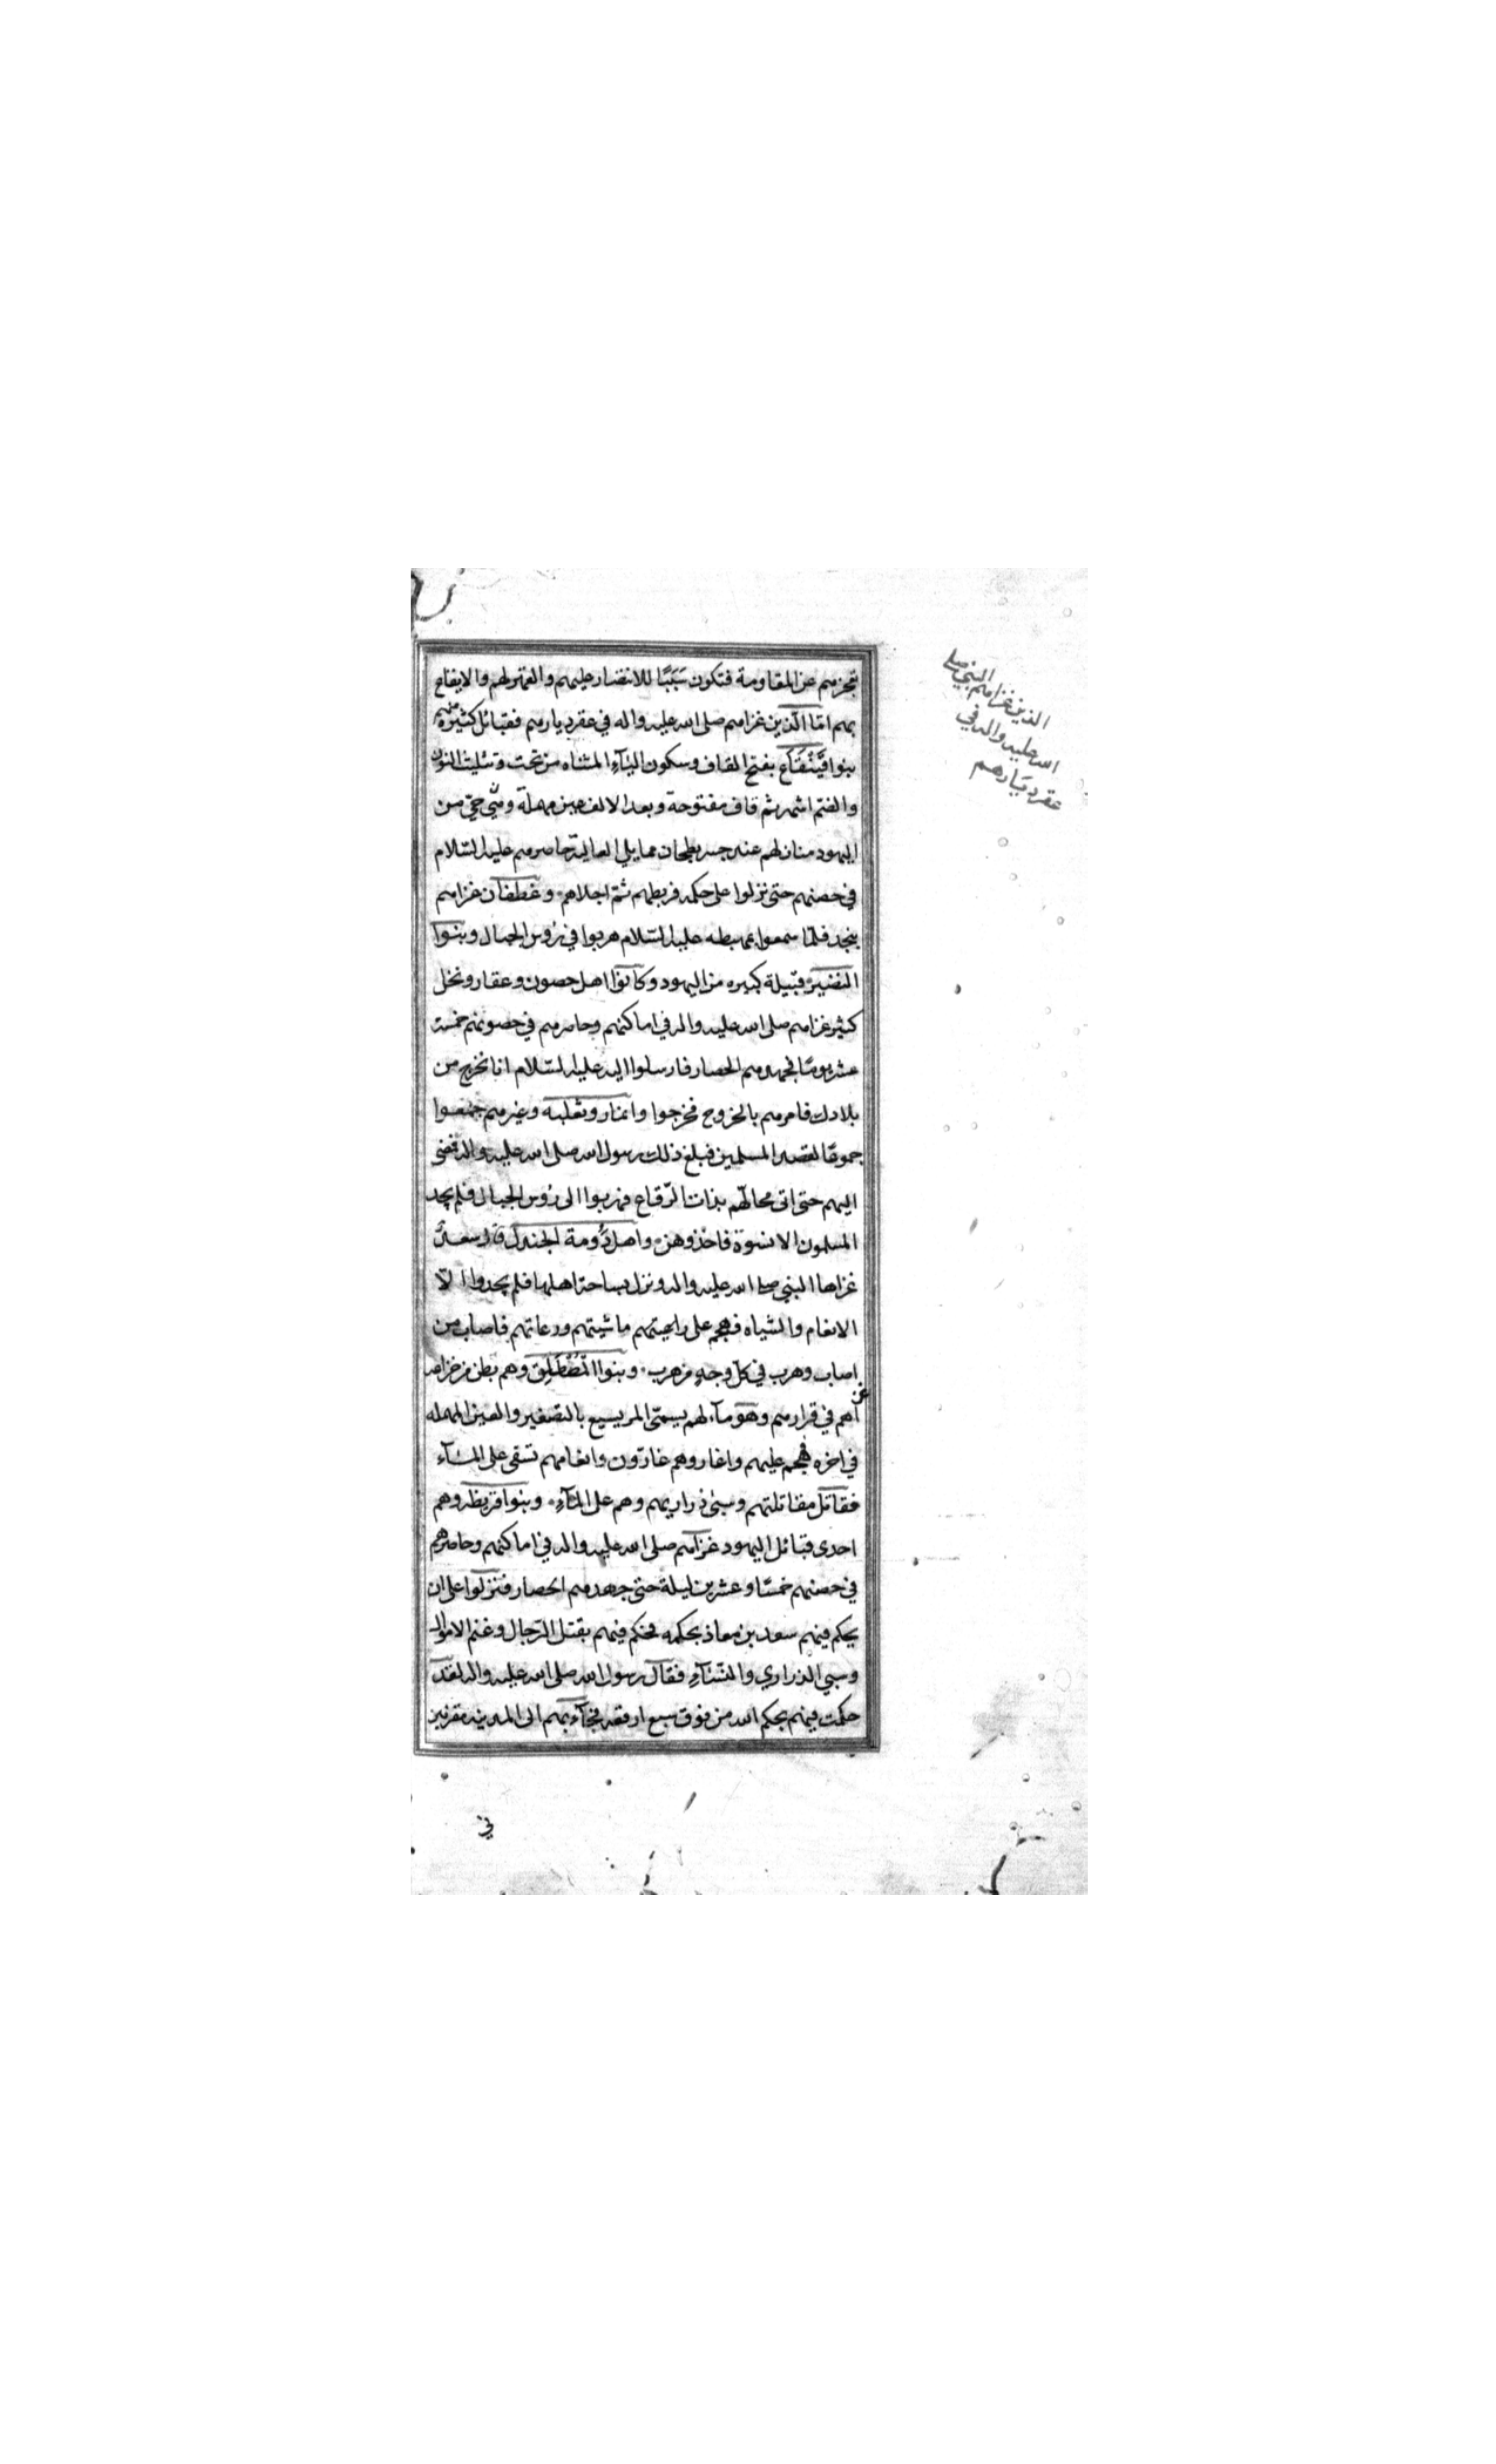 تجزيهم عن المقاومة فتكون سَبَبًا للانتصار عليهم والقهر لهم والايقاع
بهم امّا الّذين غزاهم صلى الله عليه واله في عقر ديارهم فقبائل كثيرة منهم
بنوا قَيْنُقَاع بفتح القاف وسكون اليآء المثناه من تحت وتثليث النون
والضّم اشهر ثم قاف مفتوحة وبعد الالف عين مهملة وهي حيّ من
اليهود منازلهم عند جسر بطحان مما يلي العالية حاصرهم عليه السّلام
في حصنهم حتى نزلوا على حكمه فربطهم ثمّ اجلاهم وغطفان غزاهم
بنجد فلمّا سمعوا بمهبطه عليه السّلام هربوا في رؤس الجبال وبنوا
النضير قبيلة كبيره من اليهود وكانوا اهل حصون وعقار ونخل
كثير غزاهم صلى الله عليه واله في اماكنهم وحاصرهم في حصونهم خمسة
عشر يومًا فجهدهم الحصار فارسلوا اليه عليه السّلام انا نخرج من
بلادك فامرهم بالخروج فخرجوا وانمار وثعلبه وغيرهم جمعوا
جموعًا لقصد المسلمين فبلغ ذلك رسول الله صلى الله عليه واله فمضى
اليهم حتى اتى محالّهم بذات الرّقاع فهربوا الى رؤس الجبال فلم يجد
المسلمون الا نسوة فاخذوهن واهل دُومة الجندل قال سعد
غزاها النبي صلى الله عليه واله ونزل بساحة اهلها فلم يجدوا الّا
الانعام والشياه فهجم على ماشيتهم ورعاتهم فاصاب من
اصاب وهرب في كلّ وجهٍ من هرب وبنوا المُصْطَلِق وهم بطن من خزاعه
غزاهم في قرارهم وهو مآء لهم يسمّى المريسيع بالتصغير والعين المهمله
في اخره فهجم عليهم واغار وهم غارّون وانعامهم تسقى على المآء
فقاتل مقاتلتهم وسبى ذراريهم وهم على المآء وبنوا قريظه وهم
احدى قبائل اليهود غزاهم صلى الله عليه واله في اماكنهم وحاصرهم
في حصنهم خمسًا وعشرين ليلة حتى جهدهم الحصار فنزلوا على ان
يحكم فيهم سعد بن معاذ بحكمه فحكم فيهم بقتل الرّجال وغنم الاموال
وسبي الذراري والنّسآء فقال رسول الله صلى الله عليه واله لقد
حكمت فيهم بحكم الله من فوق سبع ارقعه فجآء بهم الى المدينه مقرنين
في
الذين غزاهم النبي صلى
الله عليه واله في
عقر ديارهم